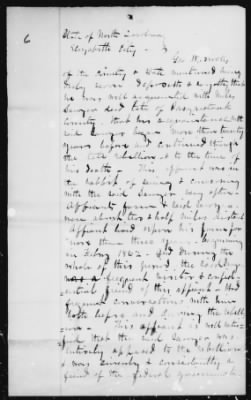 6
State of North Carolina
Elizabeth City
Geo W. Brooks
of the County & State mentioned being
duly sworn deposeth & sayeth that
he was well acquainted with Miles
Sawyer decd late of Pasquotank
County. that his acquaintance with
said Sawyer began more than twenty
years before and continued through
the late rebellion & to the time of
his death - This affiant was in
the habbit of seeing & conversing
with the said Sawyer very often -
Affiants farm & said Sawyer
were about two & half miles distant
Affiant lived upon his farm for
more than three years - beginning
in Feby 1862 - And during the
whole of this period the said
was a frequent visitor & confi-
dential friend of this affiant - Had
frequent conversations with him
both before and during the rebell-
ion - This affiant is well satis-
fied that the said Sawyer was
entirely opposed to the rebellion
& was sincerely & consistently a
friend of the Federal government